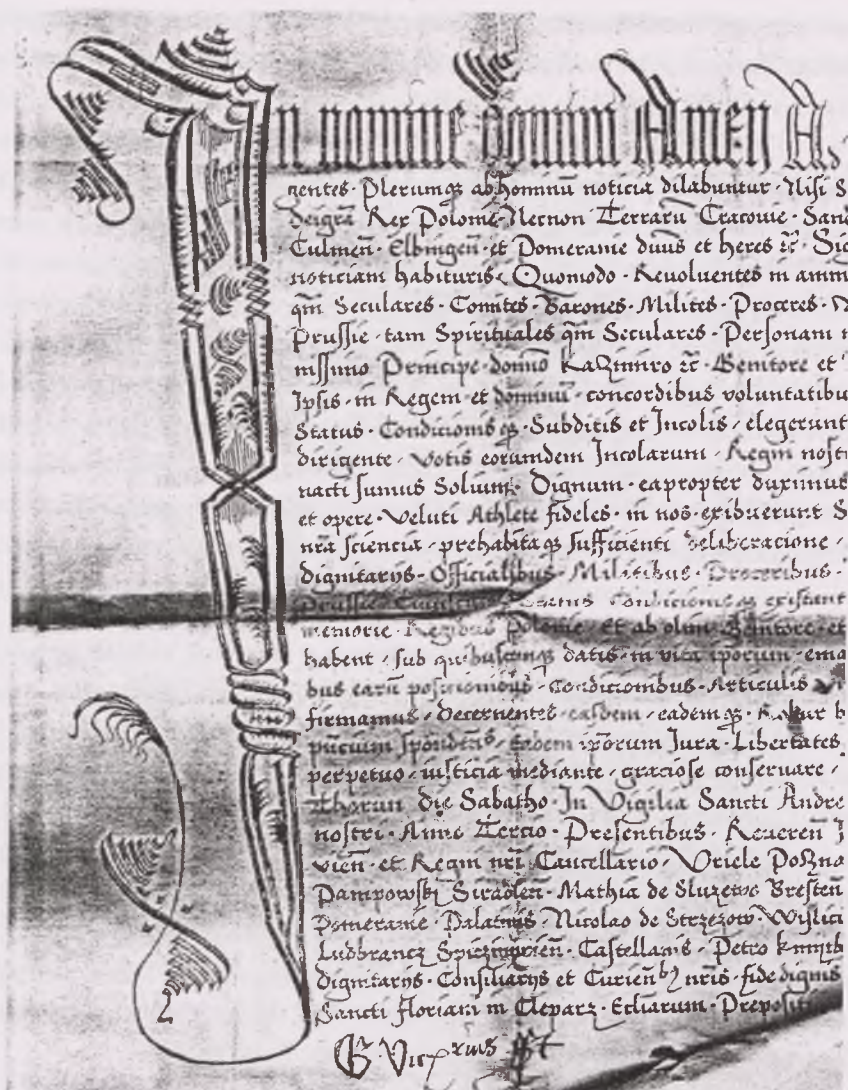 In nomine domini Amen A.
gentes · Plerumqȝ ab hominū noticia dilabuntur · Nisi S
deigr̄a Rex Polonie · Necnon Terrarū Cracovie · Sand
Culmen̄ · Elbingen̄ · et Pomeranie dn̄us et heres ⁊c̄ · Sig
noticiam habituris · Quomodo · Revolventes in anim
qm̄ Seculares · Comites · Barones · Milites · Proceres ·
Prussie · tam Spirituales qm̄ Seculares · Personam n
nissimo Principe · domīo Kazimiro ⁊c̄ · Genitore et
Ipsis · in Regem et dominū · concordibus voluntatibu
Status · Condicionis qȝ · Subditis et Incolis / elegerunt
dirigente · Votis eorumdem Incolarum · Regni nostri
nacti sumus Solium · Dignum · eapropter duximus
et opere · Veluti Athlete fideles · in nos · exibuerunt S
nr̄a sciencia / prehabitaqȝ sufficienti deliberacione /
dignitarijs · Officialibus · Militibus · Proceribus ·
Prussie Status Condicionisqȝ existant
memorie · Regibus Polonie · Et ab olim · Genitore · et
habent / sub quibuscunqȝ datis · in vita ip̄orum · ema
bus earū posicionibus · Condicionibus · Articulis
firmamus / Decernentes · easdem / eademqȝ · Robur
eadem ip̄orum Jura · Libertates
perpetuo / iusticia mediante / graciose conservare /
Thorun die Sabatho · In Vigilia Sancti Andre
nostri · Anno Tercio · Presentibus · Reveren̄
vien̄ · et Regni nr̄i Cancellario / Uriele Pozna
Pampowskj Siradien̄ · Mathia de Sluzewo Bresten̄
Pomeranie · Palatinis · Nicolao de Strzezow · Wislici
Ludbrancz Castellanis · Petro kmijth
dignitarijs · Consiliarijs et Curien̄ nr̄is · fidedignis
Sancti floriani in Cleparz · Eccliarum · Preposit